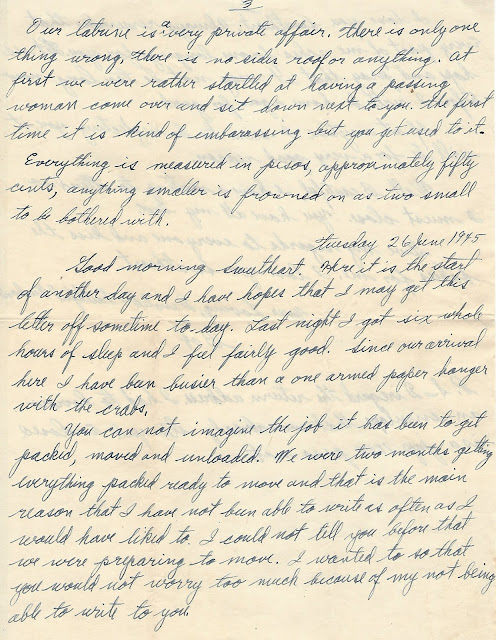 3
Our latrine is a very private affair. there is only one
thing wrong, there is no sides roof or anything. At
first we were rather startled at having a passing
woman come over and sit down next to you. the first
time it is kind of embarassing but you get used to it.
Everything is measured in pisos, approximately fifty
cents, anything smaller is frowned on as two small
to be bothered with.
Tuesday 26 June 1945
Good morning Sweetheart. Here it is the start
of another day and I have hopes that I may get this
letter off sometime to-day. Last night I got six whole
hours of sleep and I feel fairly good. Since our arrival
here I have been busier than a one armed paper hanger
with the crabs.
You can not imagine the job it has been to get
packed, moved and unloaded. We were two months getting
everything packed ready to move and that is the main
reason that I have not been able to write as often as I
would have liked to. I could not tell you before that
we were preparing to move. I wanted to so that
you would not worry too much because of my not being
able to write to you.